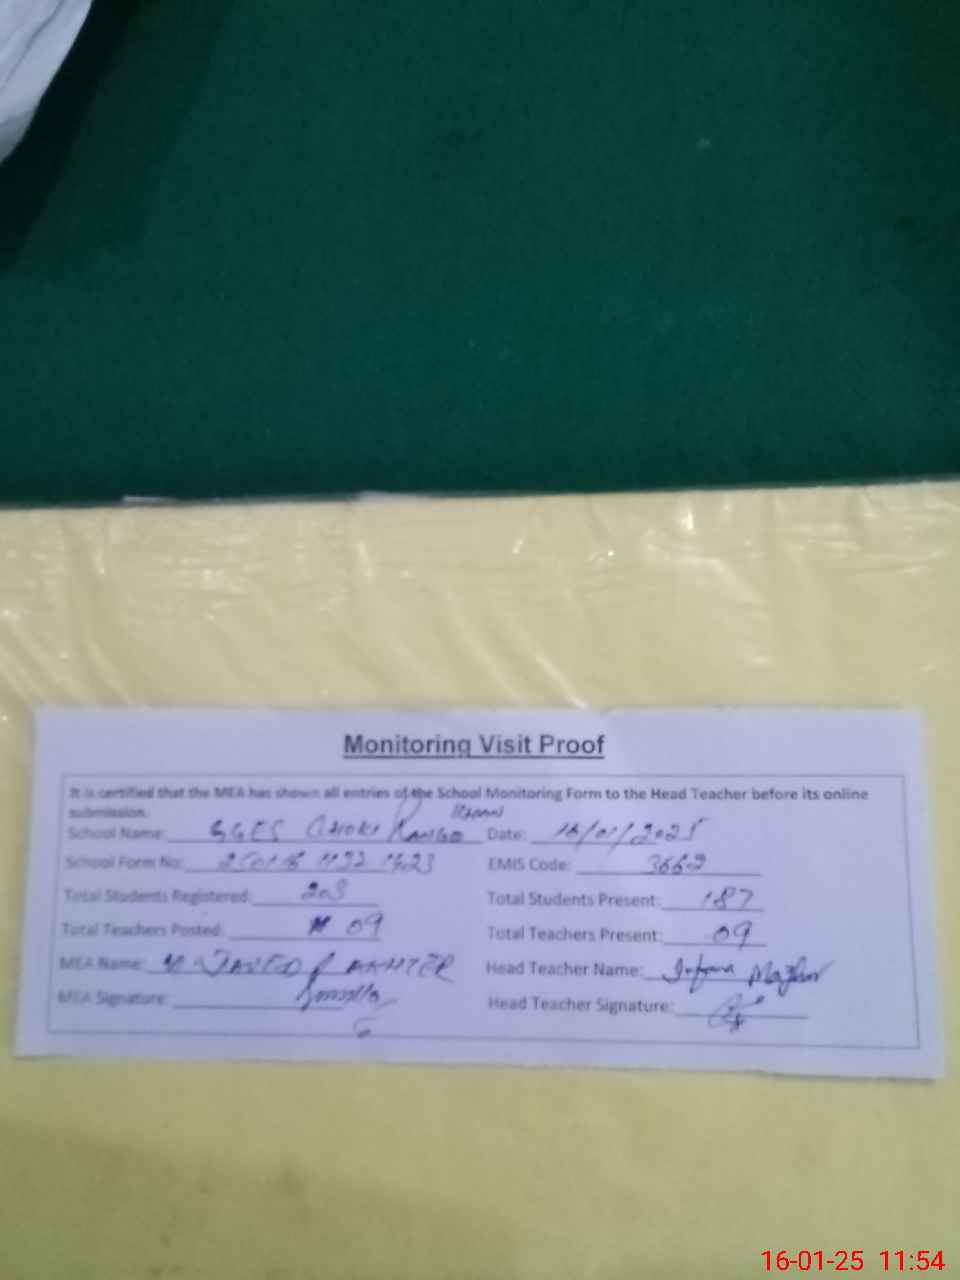 Monitoring Visit Proof
It is certified that the MEA has shown all entries of the School Monitoring Form to the Head Teacher before its online
submission.
School Name: GGES CHOKI Date: 16/01/2025
School Form No: EMIS Code: 3662
Total Students Registered: 203 Total Students Present: 187
Total Teachers Posted: 09 Total Teachers Present: 09
MEA Name: M JAVED AKHTER Head Teacher Name:
MEA Signature: Head Teacher Signature:
16-01-25 11:54